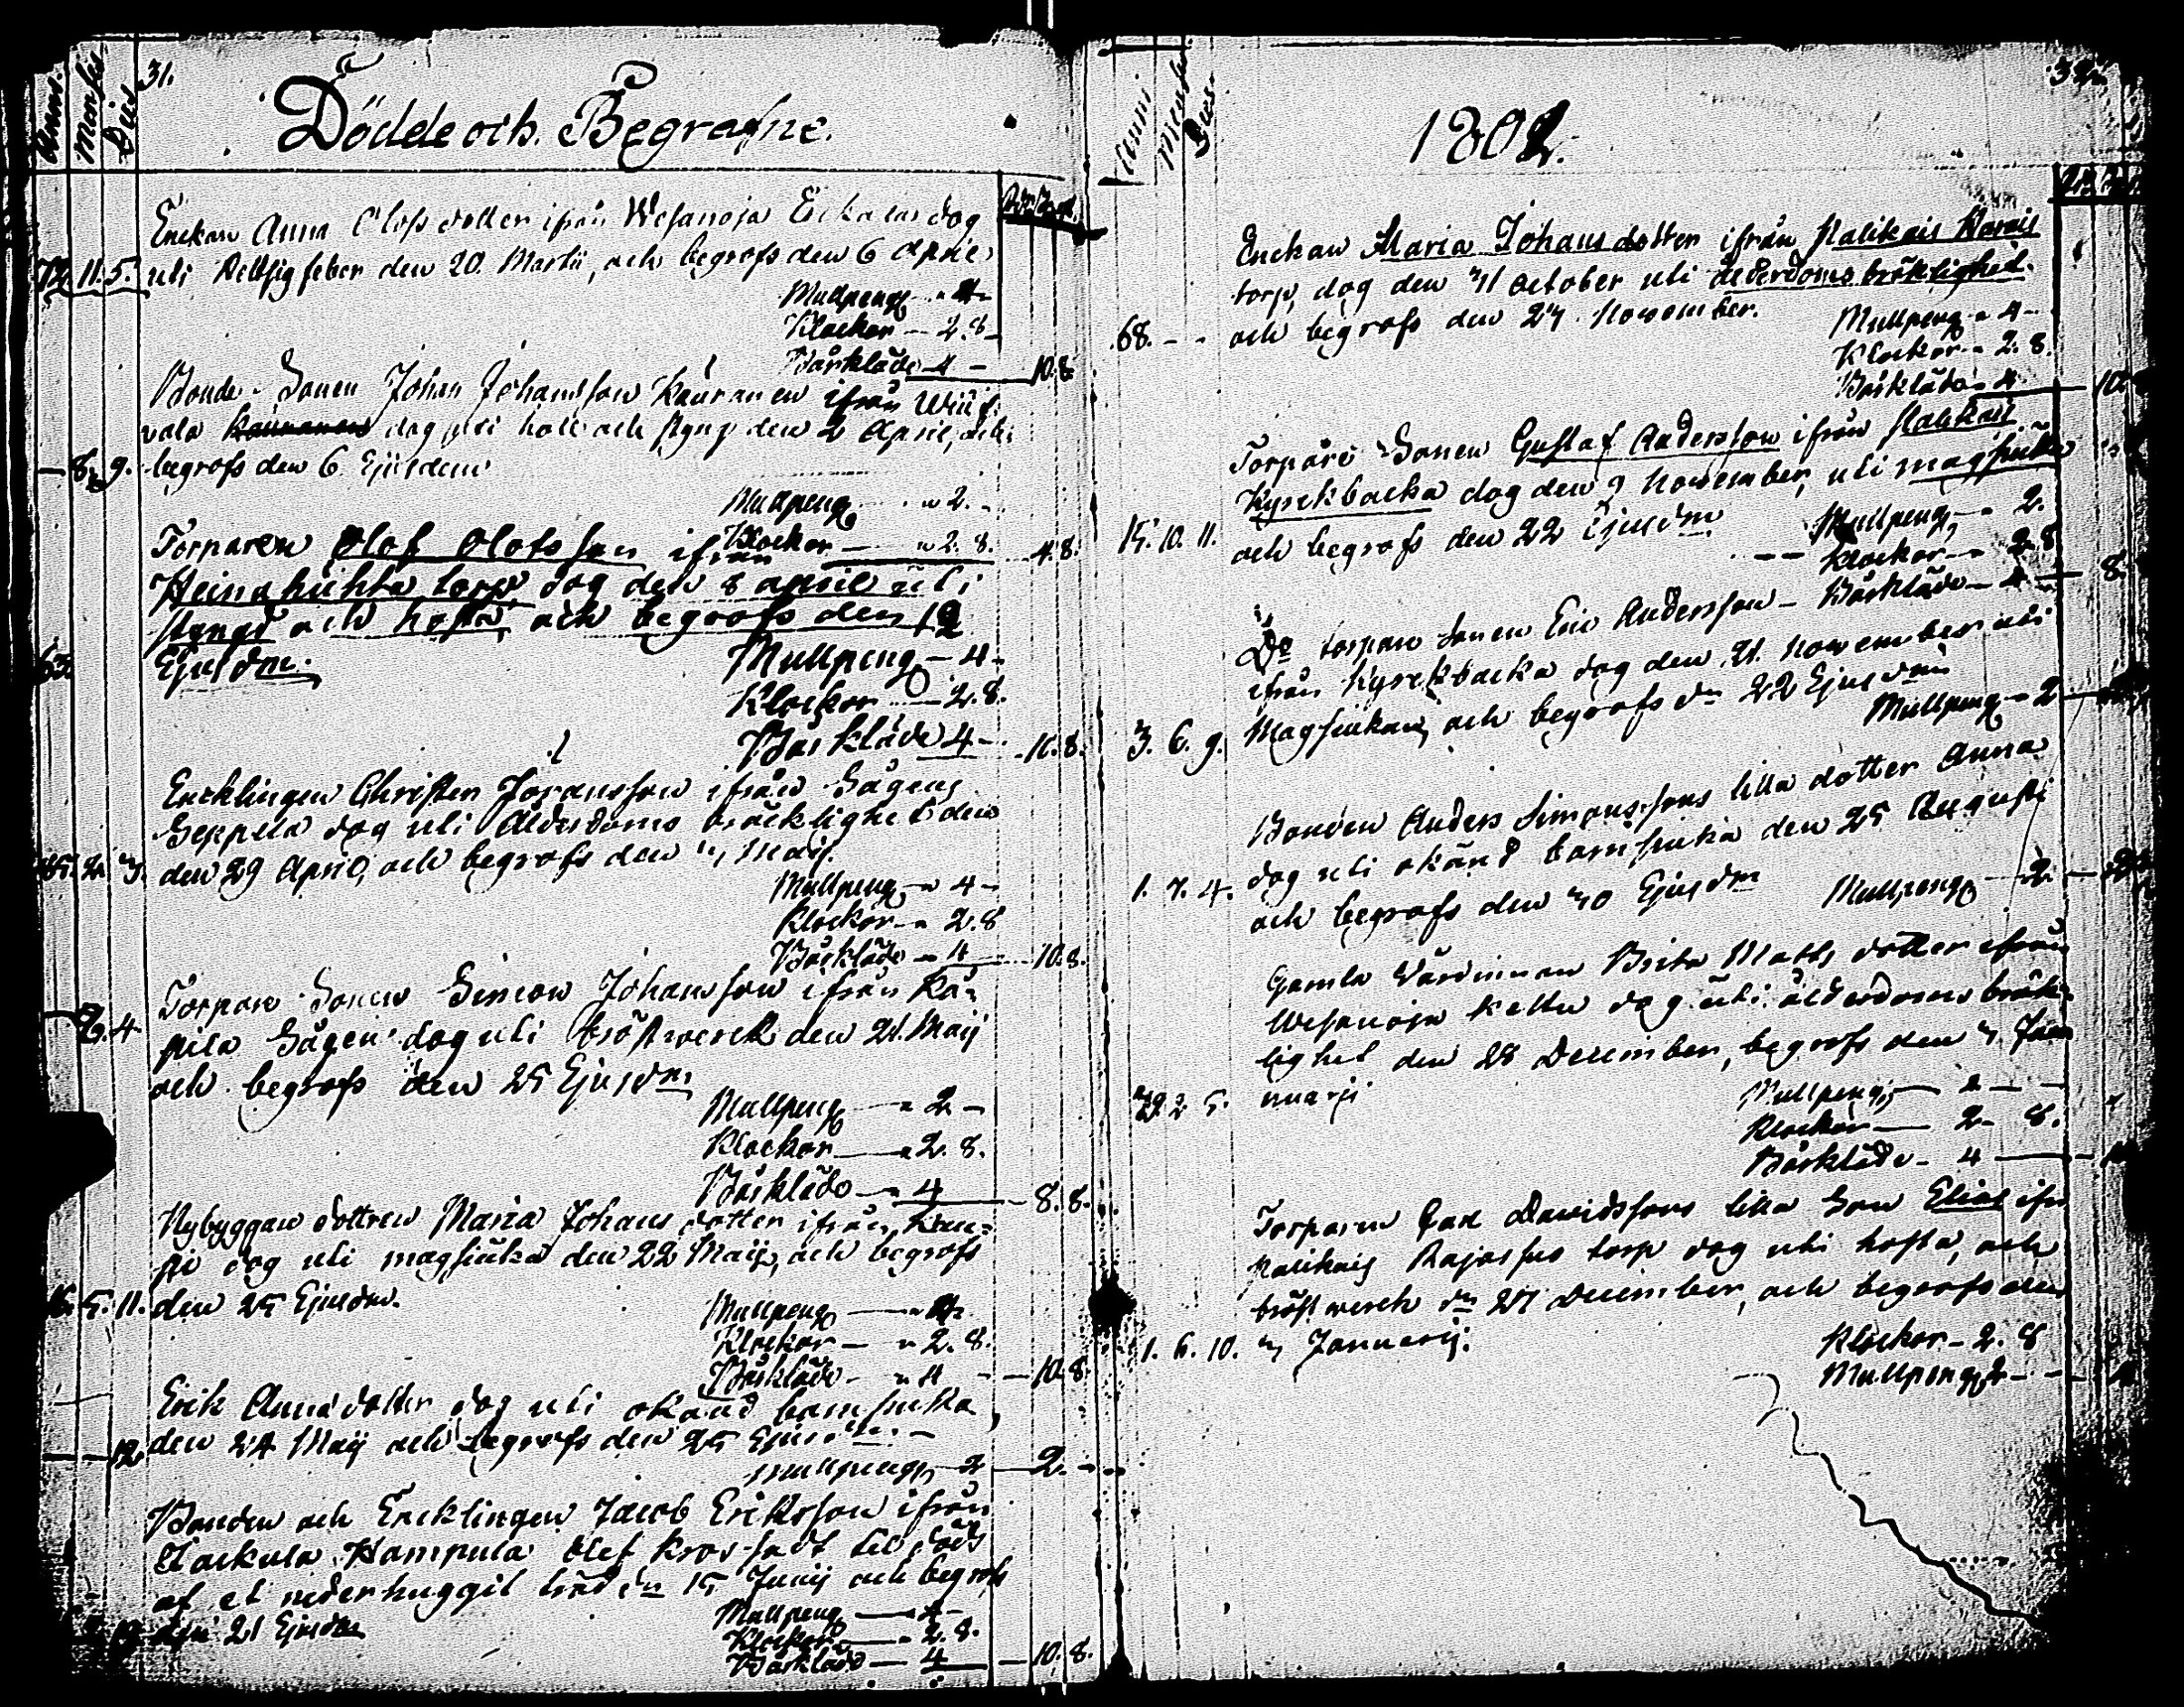 Anni. Mensis Dies
31.
Dödde och Begrafne.
Enckan Anna Olofs dotter ifrån Wesanoja Erkalas dog
72. 11. 5. uti Rettsig feber den 20. Martii, och begrofs den 6 April
Mullpeng - 4 -
Klockor - 2. 8 -
Bårkläde 4 - 10. 8.
Bonde-Sonen Johan Johansson Kauranen ifrån
vala dog uti håll och styng den 2 April, och
- 8. 9. begrofs den 6 Ejusdem
Mullpeng - 2. -
Torparen Olof Olofsson ifrån
Klockor - 2. 8. 4. 8.
Heinahuhta torp, dog den 8 april uti
styngd och hosta, och begrofs den 12
63. Ejusdm.
Mullpeng - 4 -
Klockor - 2. 8.
Bårkläde 4 - 10. 8.
Encklingen Christer Joransson ifrån Sågens
Seppela dog uti Ålderdoms bräcklighet den
den 29 April, och begrofs den Maij.
Mullpeng - 4 -
Klockor - 2. 8
Bårkläde - 4 - 10. 8.
Torpare Sonen Simon Johansson ifrån Kä-
- 8. 4. pula Sågen dog uti bröstwerck den 21. Maij
och begrofs den 25 Ejusdm
Mullpeng - 2 -
Klockor - 2. 8.
Bårkläde - 4 - 8. 8.
Nybyggare dottren Maria Johans dotter ifrån
dog uti magsiuka den 22 Maij, och begrofs
5. 11. den 25 Ejusdm.
Mullpeng - 4 -
Klockor - 2. 8.
Bårkläde - 4 - 10. 8.
Erik Annæ dotter dog uti okänd barnsiuka,
- - 12. den 24 Maij och begrofs den 25 Ejusdm. -
Mullpeng 2 - 2. -
Bonden och Encklingen Jacob Eriksson ifrån
Hampula blef kros-sadt till döds
af et nederhuggit träd dn 15 Junij och begrofs
den 21 Ejusdm
Mullpeng - 4 -
Klockor - 2. 8.
Bårkläde - 4 - 10. 8.
Anni Mensis Dies
32.
1802.
Enckan Maria Johansdotter ifrån Halikais
torp, dog den 31 October uti ålderdoms bräklighet.
68. - - och begrofs den 27. November.
Mullpeng - 4 -
Klockor - 2. 8.
Bårkläde - 4 - 10.
Torpare Sonen Gustaf Andersson ifrån Halikais
Kyrckbacka dog den 9 November, uti magsiuka
15. 10. 11. och begrofs den 22 Ejusdm
Mullpeng - 2.
Klockor - 2. 8
Bårkläde - 4 - 8.
Do torpare sonen Eric Andersson
ifrån Kyrckbacka dog den 21. November uti
3. 6. 9. Magsiukan, och begrofs dn 22 Ejusdm
Mullpeng - 2
Bonden Anders Simonssons lilla dotter Anna
1. 7. 4. dog uti okänd barnsiuka den 25 Augusti
och begrofs den 30 Ejusdm Mullpeng - 2
Gamla Värdinnan Brita Mats dotter ifrån
Wesanoja Kellu dog uti ålderdoms bräck-
lighet den 28 December, begrofs den 3 Ja-
72. 2. 5. nuarji
Mullpeng -
Klockor - 2. 8.
Bårkläde - 4
Torparen Carl Davidssons lilla Son Elias ifrån
Halikais torp dog uti hosta, och
bröst werck dn 27 December, och begrofs den
1. 6. 10. 3 Januarij.
Klockor - 2. 8
Mullpeng 2 -